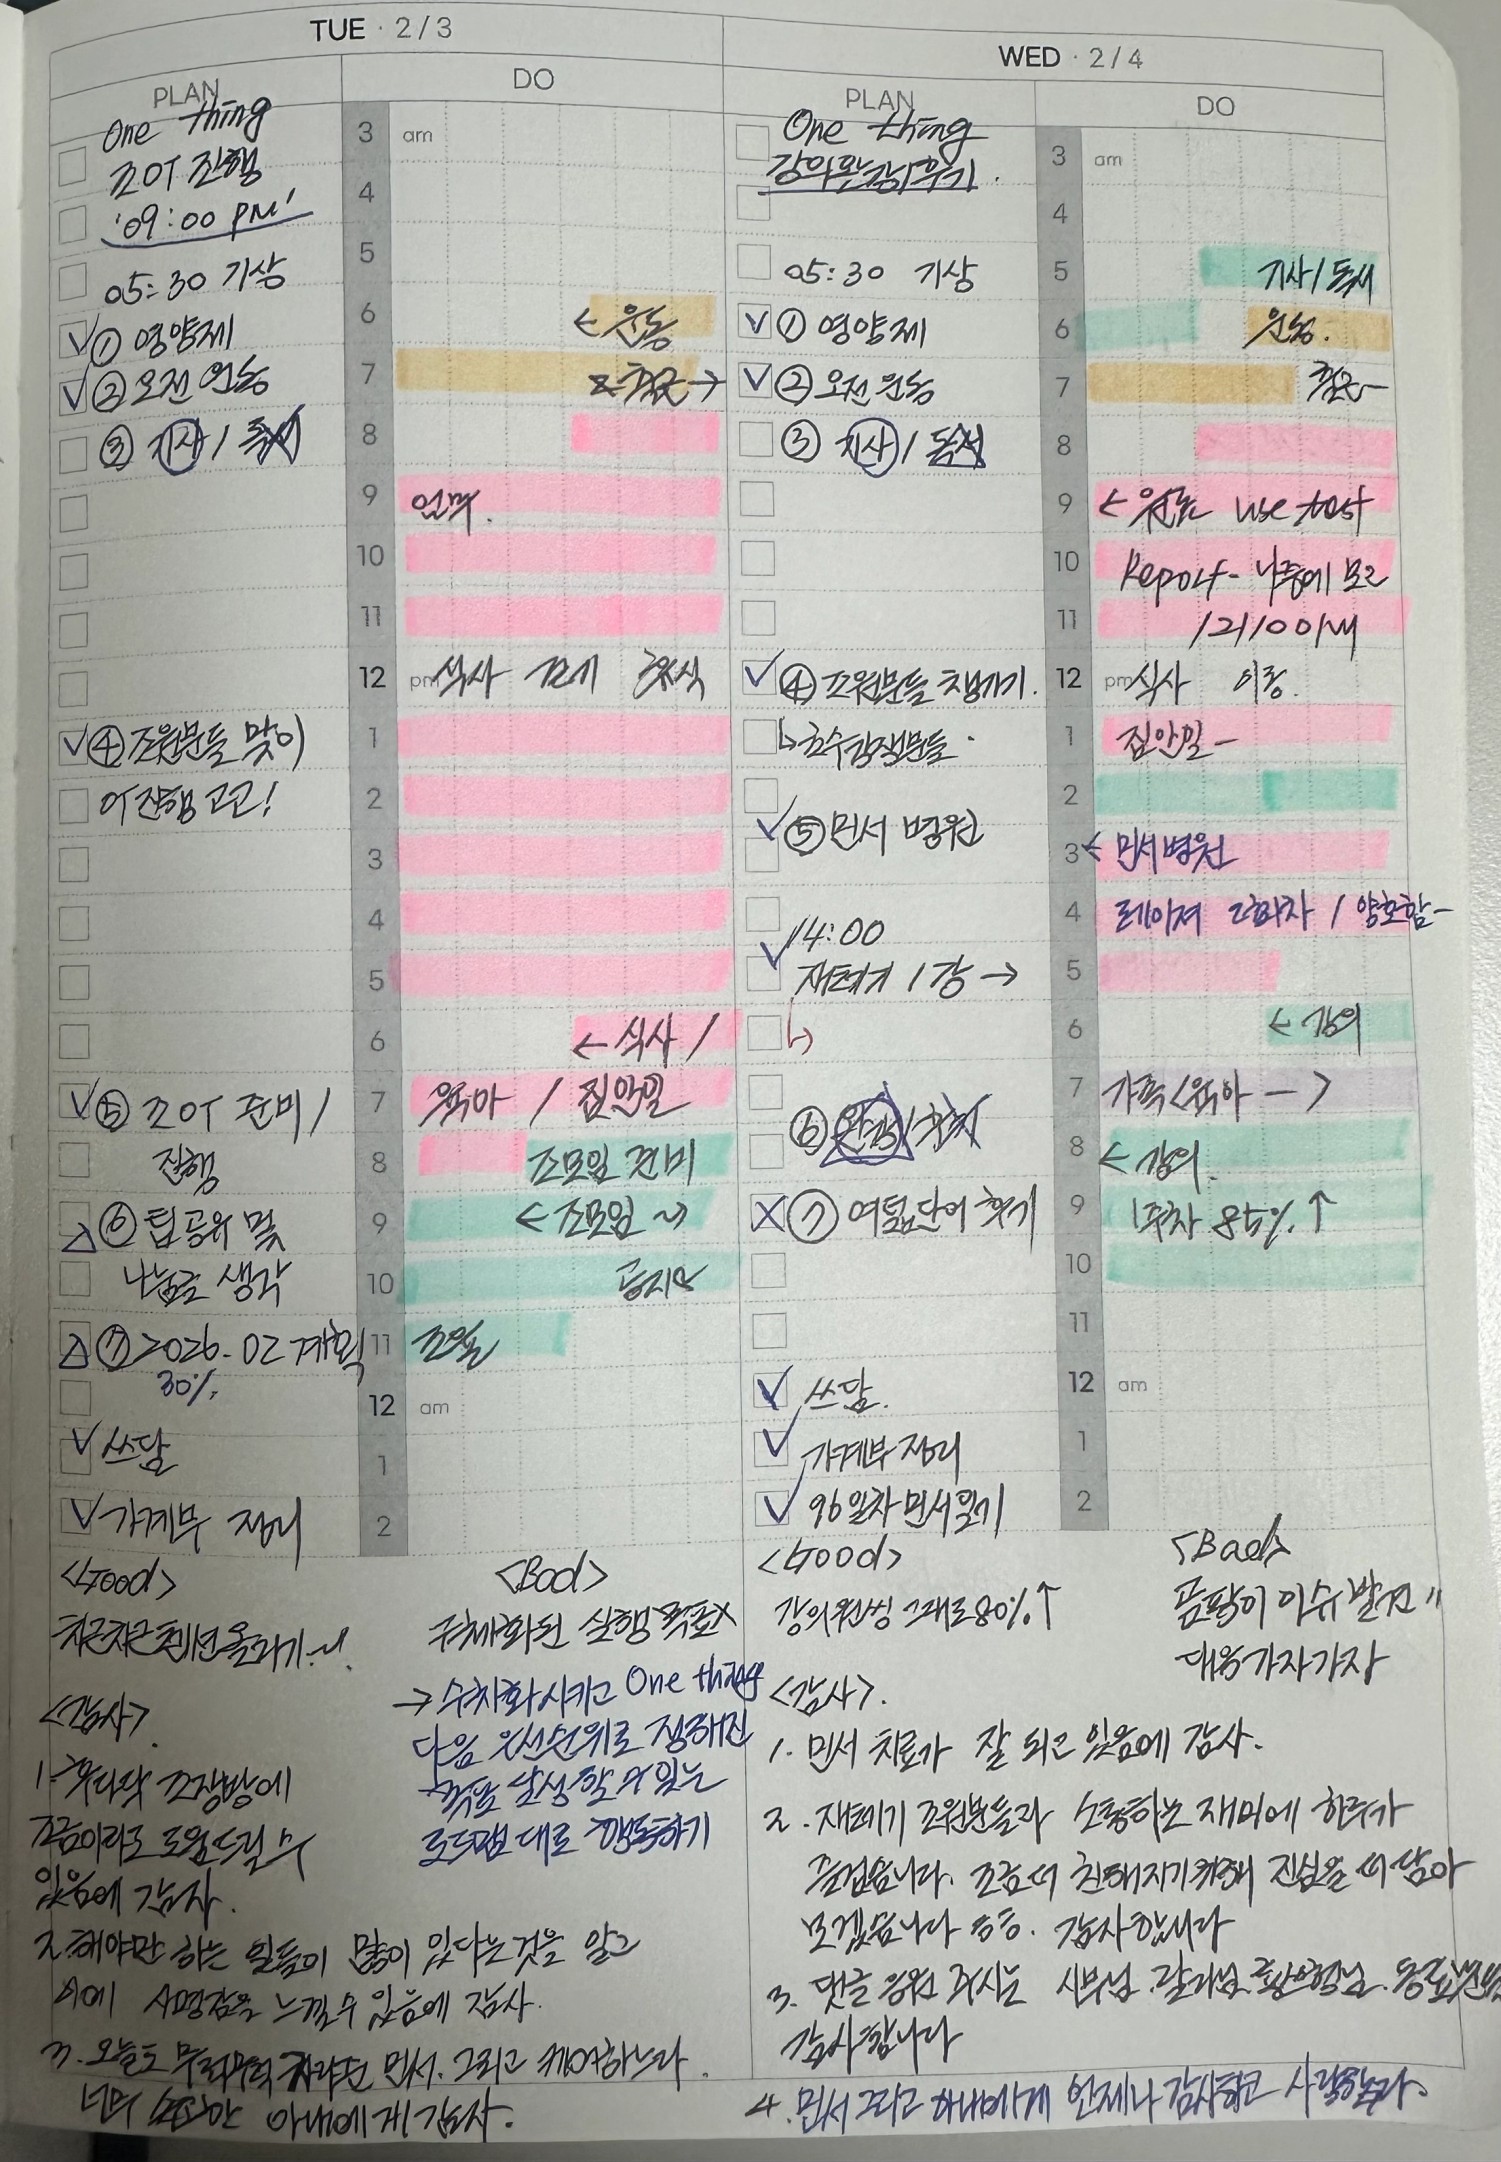 TUE · 2/3
PLAN
DO
One thing
조OT 진행
'09:00 PM'
05:30 기상
① 영양제
② 오전 운동
③ 시사 / 독서
④ 조원분들 맞이
OT 진행 고고!
⑤ 조OT 준비 /
진행
⑥ 팁 공유 및
나눔글 생각
⑦ 2026-02 계획
30%
쓰담
가계부 정리
3 am
4
5
6 ← 운동
7 출근 →
8
9 업무.
10
11
12 pm 식사 휴식
1
2
3
4
5
6 ← 식사 /
7 육아 / 집안일
8 조모임 준비
9 ← 조모임
10
11 조모임
12 am
1
2
<Good>
차근차근 텐션 올리기~!
<Bad>
구체화된 실행 목표x
→ 수치화시키고 One thing
다음 우선순위로 정해진
목표 달성할 수 있는
로드맵대로 행동하기
<감사>
1. 후다닥 조장방에
조금이라도 도움드릴 수
있음에 감사.
2. 해야만 하는 일들이 많이 있다는 것을 알고
이에 사명감을 느낄 수 있음에 감사.
3. 오늘도 무럭무럭 자라준 민서. 그리고 케어하느라
너무 수고한 아내에게 감사.
WED · 2/4
PLAN
DO
One thing
강의완강/후기.
05:30 기상
① 영양제
② 오전 운동
③ 시사 / 독서
④ 조원분들 챙기기.
⑤ 민서 병원
14:00
재테기 1강 →
⑥ 완강 / 후기
⑦ 여덟단어 후기
쓰담.
가계부 정리
96일차 민서일기
3 am
4
5 기상/독서
6 운동.
7 출근-
8
9 ← use test
10 Report - 나중에 보고
11
12 pm 식사 이동.
1 집안일-
2
3 ← 민서병원
4 레이져 / 양호함-
5
6 ← 강의
7 가족<육아 - >
8 ← 강의.
9 1주차 85% ↑
10
11
12 am
1
2
<Good>
강의 원씽 그대로 80% ↑
<Bad>
곰팡이 이슈 발견"
대응가자가자
<감사>.
1. 민서 치료가 잘 되고 있음에 감사.
2. 재테기 조원분들과 소통하는 재미에 하루가
즐겁습니다. 조금 더 친해지기 위해 진심을 더 담아
보겠습니다 ㅎㅎ. 감사합니다
3. 댓글 응원 주시는
감사합니다
4. 민서 그리고 아내에게 언제나 감사하고 사랑한다.